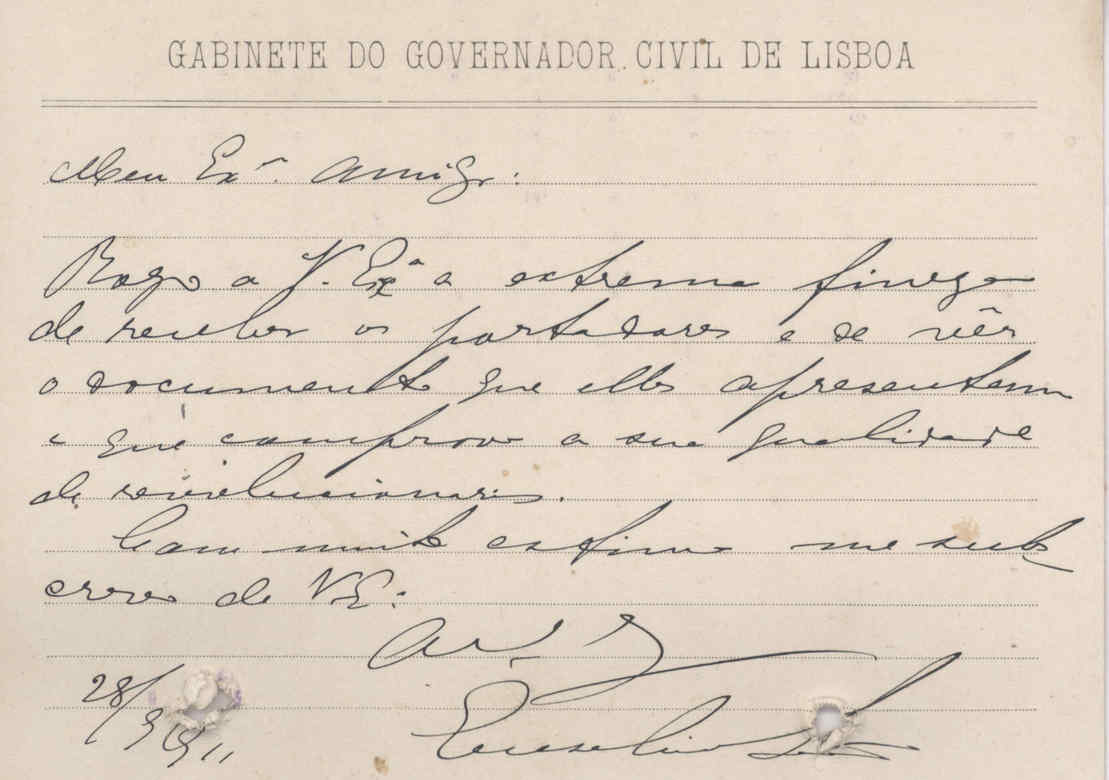 GABINETE DO GOVERNADOR CIVIL DE LISBOA
Meu Exº. Amigo:
Rogo a V. Exª a extrema fineza
de receber os portadores e de vêr
o documento que elles apresentam
e que comprova a sua qualidade
de revolucionarios.
Com muita estima me subs
crevo de V. E.
28/9/911
Eusebio Leão